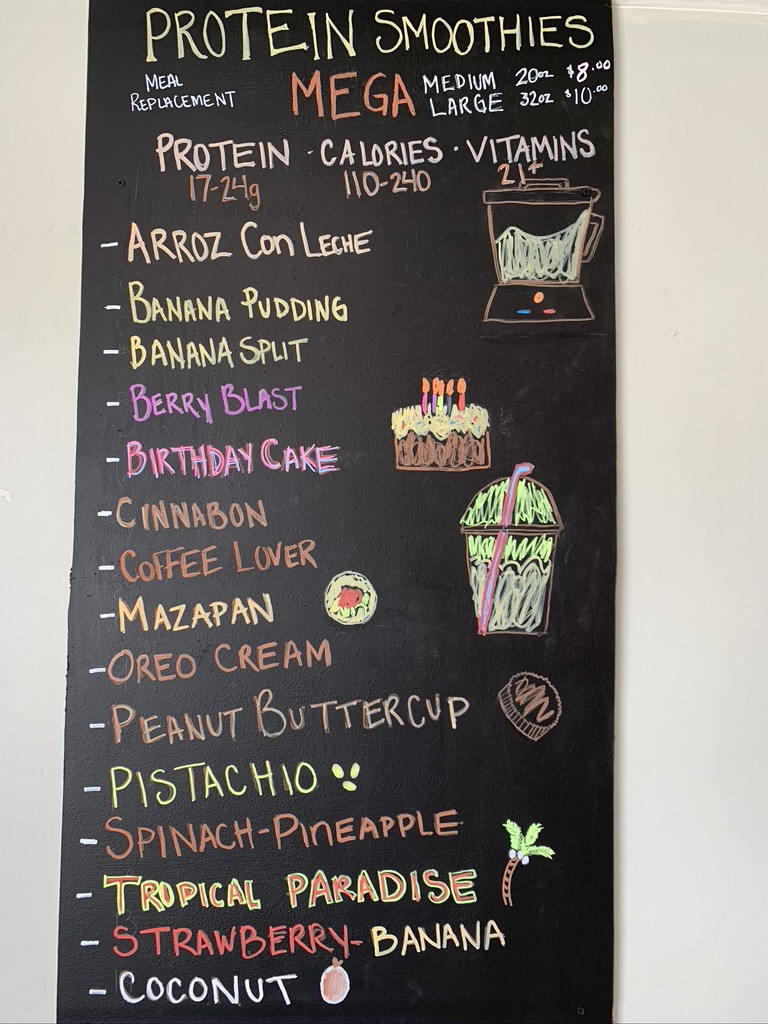 PROTEIN SMOOTHIES
MEAL REPLACEMENT
MEGA
MEDIUM 20oz $8.00
LARGE 32oz $10.00
PROTEIN · CALORIES · VITAMINS
17-24g 110-240 21+
- ARROZ Con LECHE
- BANANA PUDDING
- BANANA SPLIT
- BERRY BLAST
- BIRTHDAY CAKE
- CINNABON
- COFFEE LOVER
- MAZAPAN
- OREO CREAM
- PEANUT BUTTERCUP
- PISTACHIO
- SPINACH-PINEAPPLE
- TROPICAL PARADISE
- STRAWBERRY-BANANA
- COCONUT